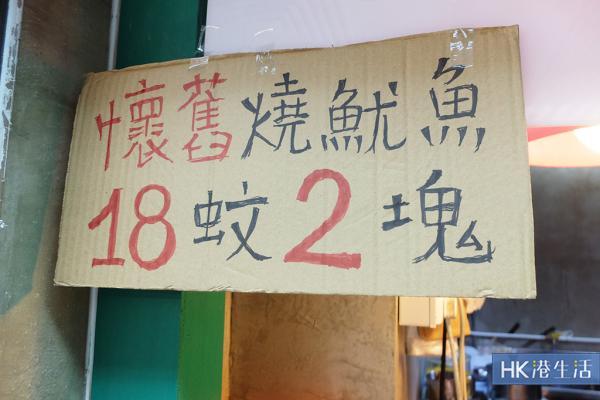 懷舊燒魷魚
18蚊2塊
HK港生活